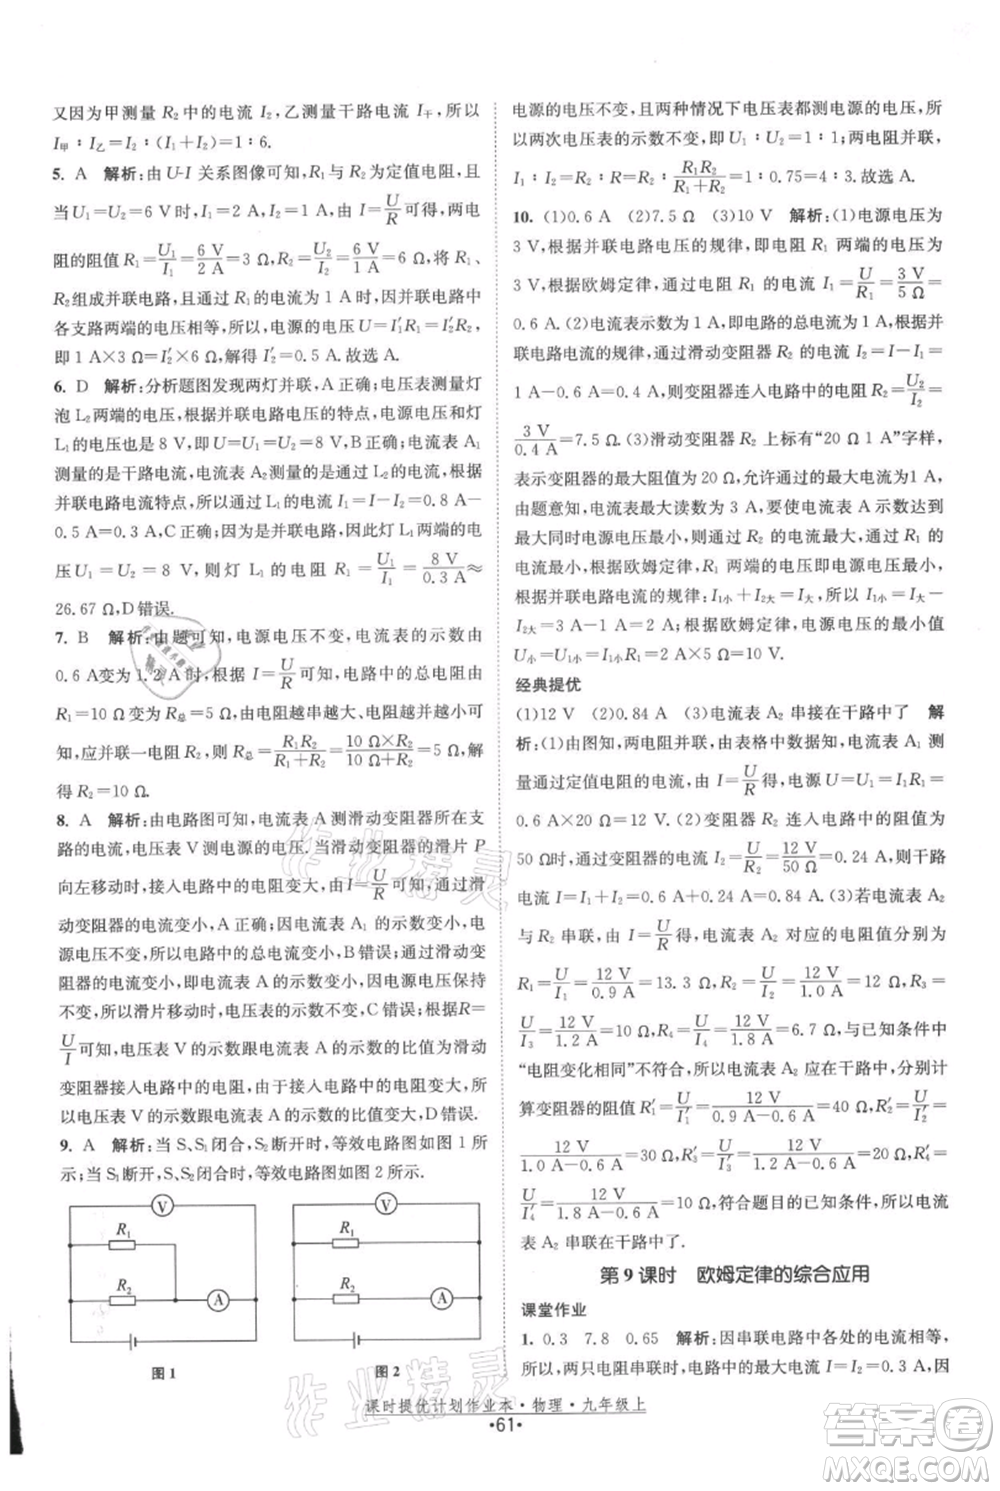 又因为甲测量 R₂ 中的电流 I₂，乙测量干路电流 I干，所以
I甲∶I乙=I₂∶(I₁+I₂)=1∶6.
5. A 解析：由 U-I 关系图像可知，R₁ 与 R₂ 为定值电阻，且
当 U₁=U₂=6 V 时，I₁=2 A，I₂=1 A，由 I=U/R 可得，两电
阻的阻值 R₁=U₁/I₁=6 V/2 A=3 Ω，R₂=U₂/I₂=6 V/1 A=6 Ω；将 R₁、
R₂组成并联电路，且通过 R₁ 的电流为 1 A 时，并联电路中
各支路两端的电压相等，所以，电源的电压 U=I₁′R₁=I₂′R₂，
即 1 A×3 Ω=I₂′×6 Ω，解得 I₂′=0.5 A. 故选 A.
6. D 解析：分析题图发现两灯并联，A 正确；电压表测量灯
泡 L₂ 两端的电压，根据并联电路的特点，电源电压和灯
L₁的电压也是 8 V，即 U=U₁=U₂=8 V，B 正确；电流表 A₁
测量的是干路电流，电流表 A₂测量的是 L₂ 的电流，根据并
联电路电流特点，所以通过 L₁ 的电流 I₁=I-I₂=0.8 A-
0.5 A=0.3 A，C 正确；因为是并联电路，因此灯 L₁ 两端的电
压U₁=U=8 V，则灯 L₁ 的电阻 R₁=U₁/I₁=8 V/0.3 A≈
26.67 Ω，D 错误.
7. B 解析：由题可知，电源电压不变，电流表的示数由
0.6 A变为1.2 A时，根据欧姆定律 I=U/R 可知，总电阻应由
R₁=10 Ω变为 R总=5 Ω，由电阻越串越大、电阻越并越小可
知，应并联一电阻 R₂，R总=R₁R₂/(R₁+R₂)=10 Ω×R₂/(10 Ω+R₂)=5 Ω，解
得 R₂=10 Ω.
8. A 解析：由电路图可知，电流表 A₁ 测滑动变阻器所在支
路的电流，电压表 V 测电源的电压. 当滑动变阻器的滑片 P
向左移动时，接入电路中的电阻变大，由 I=U/R可知，通过滑
动变阻器的电流变小，A 正确；因电流表A₁ 的示数变小，电
源电压不变，所以电路中的总电流变小，B 错误；因电压表测
电源的电压，且电源的电压保持不变，所以，滑片移动时，电压
表 V 的示数不变，即电流表 A 的示数变小，电压表 V 的示数
不变，所以滑片移动时，电压表 V 的示数不变，C 错误；根据 R=
U/I可知，电压表 V 的示数跟电流表 A₁ 的示数的比值为滑动
变阻器接入电路中的电阻，由于滑动变阻器接入电路中的电阻变大，
所以电压表 V 的示数跟电流表A₁的示数的比值变大，D错误.
9. A 解析：当 S、S₁闭合，S₂断开时，等效电路图如图 1 所
示；当 S₁断开，S、S₂闭合时，等效电路图如图 2 所示.
V
R₁
R₂
A
图 1
V
R₁
R₂
A
图 2
电源的电压不变，且两种情况下电压表都测电源的电压，所
以两次电压表的示数不变，即 U₁∶U₂=1∶1；由电阻并联，
I₁∶I₂=1/R₁∶1/(R₁R₂/(R₁+R₂))=1∶0.75=4∶3. 故选 A.
10. (1)0.6 A (2)7.5 Ω (3)10 V 解析：(1)电源电压为
3 V，根据并联电路电压的规律，即电阻 R₁ 两端的电压为
3 V，根据欧姆定律，通过电阻 R₁ 的电流 I₁=U/R₁=3 V/5 Ω=
0.6 A. (2)电流表示数为 1 A，即电路的总电流为 1 A，根据并联
电路电流的规律，通过滑动变阻器 R₂ 的电流 I₂=I-I₁=
1 A-0.6 A=0.4 A，则变阻器连入电路中的电阻 R₂=U₂/I₂=
3 V/0.4 A=7.5 Ω. (3)滑动变阻器 R₂ 上标有“20 Ω 1 A”字样，
表示变阻器的最大阻值为 20 Ω，允许通过的最大电流为 1 A.
由题意可知，电流表最大读数为 3 A，要求电流表 A 示数达到
最大同时电源电压最小，即 R₂ 的电流最大，通过 R₁ 的
电流最小，则根据欧姆定律可知，此时电源电压最小. 根据并
联电路电流的规律：I₁小+I₂大=I大，所以，I₁小=I大-
I₂大=3 A-1 A=2 A，根据欧姆定律，电源电压的最小值
U小=I₁小R₁=2 A×5 Ω=10 V.
经典提优
(1)12 V (2)0.84 A (3)电流表 A₂ 串接在干路中了 解
析：(1)由图知，两电阻并联，由表格中数据知，电流表 A₁ 测
量通过定值电阻的电流，由 I=U/R得，电源电压 U=U₁=I₁R₁=
0.6 A×20 Ω=12 V. (2)变阻器 R₂ 连入电路中的电阻为
50 Ω时，通过变阻器的电流 I₂=U/R₂=12 V/50 Ω=0.24 A，则干路
电流 I=I₁+I₂=0.6 A+0.24 A=0.84 A. (3)若电流表 A₂
与 R₂ 串联，由 I=U/R得，电流表 A₂ 对应的电阻值分别为
R₁=U/I₁=12 V/0.9 A=13.3 Ω，R₂=U/I₂=12 V/1.0 A=12 Ω，R₃=
U/I₃=12 V/1.2 A=10 Ω，R₄=U/I₄=12 V/1.8 A=6.7 Ω，与已知条件中
“电阻变化相同”不符合，若电流表 A₂ 串接在干路中，由此
计算变阻器的电阻 R₁′=U/I₁′=12 V/(0.9 A-0.6 A)=40 Ω，R₂′=U/I₂′=
12 V/(1.0 A-0.6 A)=30 Ω，R₃′=U/I₃′=12 V/(1.2 A-0.6 A)=20 Ω，R₄′=
U/I₄′=12 V/(1.8 A-0.6 A)=10 Ω，符合题目的已知条件，所以电流
表 A₂ 串联在干路中了.
第 9 课时 欧姆定律的综合应用
课堂作业
1. 0.3 7.8 0.65 解析：因串联电路中各处的电流相等，
所以，两只电阻串联时，电路中的最大电流 I=I₁=0.3 A，因
课时提优计划作业本·物理·九年级上
·61·
作业精灵
作业精灵
答案圈
MXQE.COM